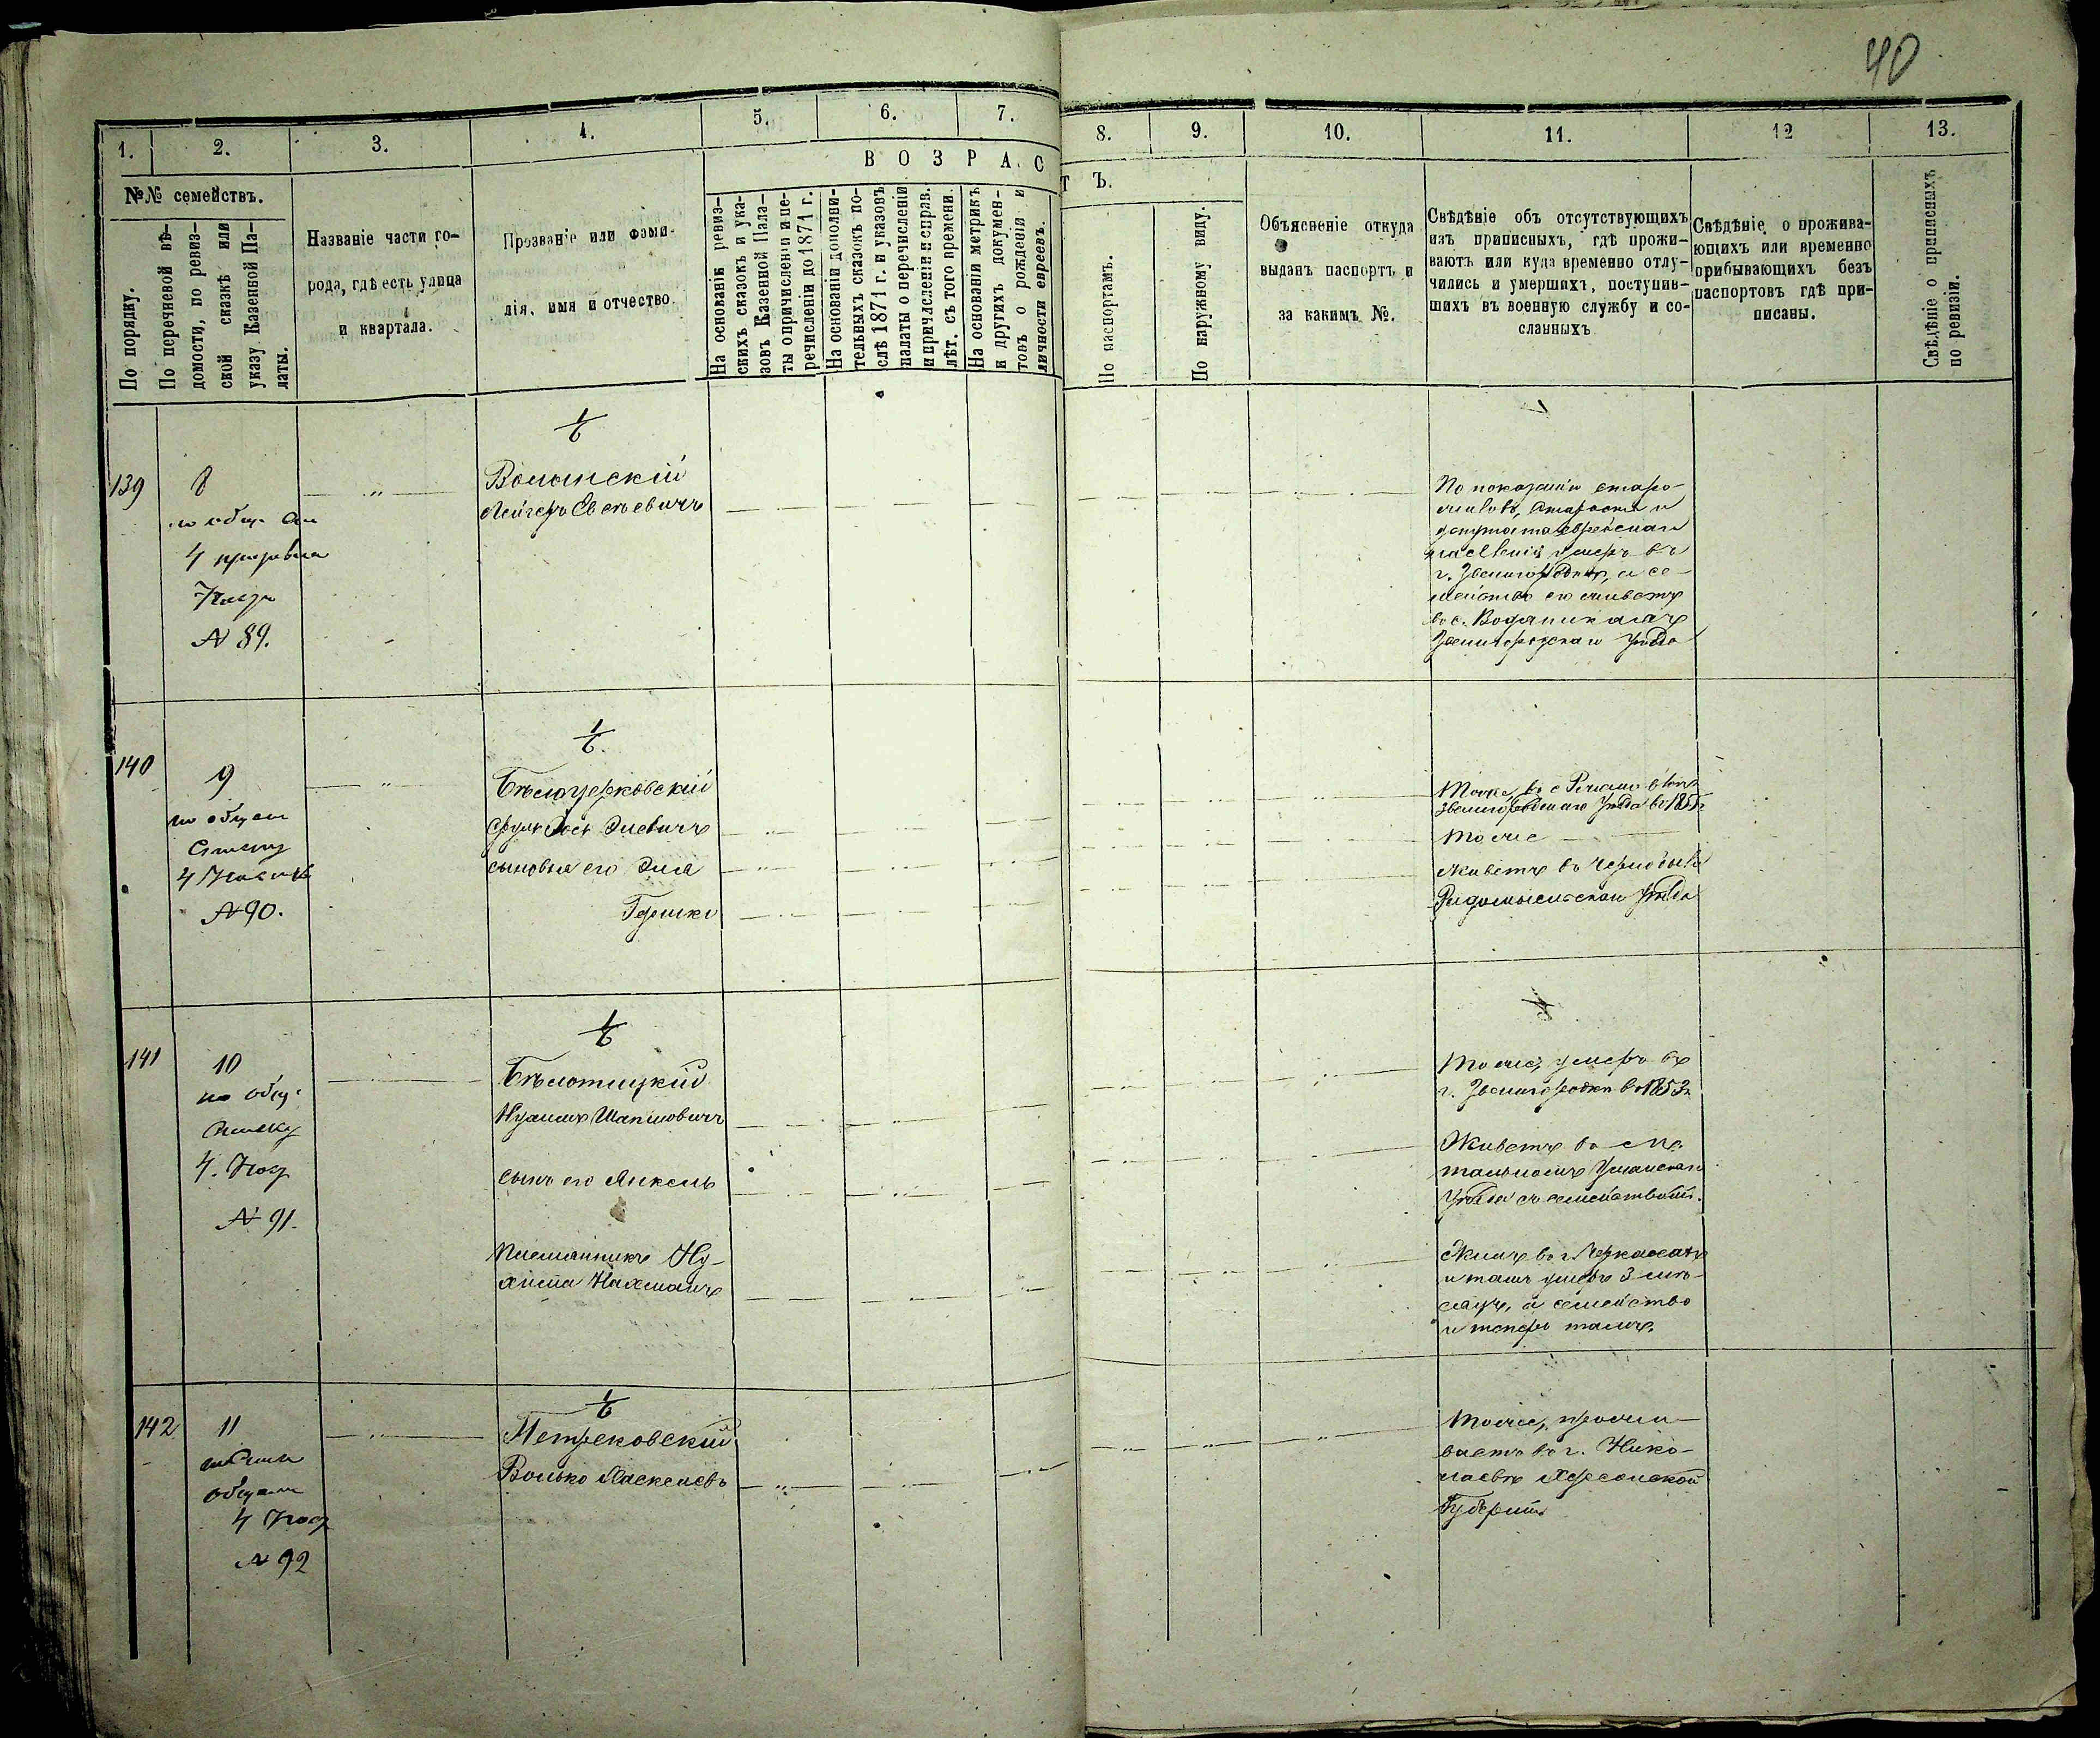 40
1. 2. 3. 4. 5. 6. 7. 8. 9. 10. 11. 12 13.
№№ семействъ.
По порядку.
По перечневой вѣ-
домости, по ревиз-
ской сказкѣ или
указу Казенной Па-
латы.
Названіе части го-
рода, гдѣ есть улица
и квартала.
Прозваніе или фами-
лія, имя и отчество.
ВОЗРАСТЪ.
На основаніи ревиз-
скихъ сказокъ и ука-
зовъ Казенной Пала-
ты о причисленіи и пе-
речисленіи до 1871 г.
На основаніи дополни-
тельныхъ сказокъ по-
слѣ 1871 г. и указовъ
палаты о перечисленіи
и причисленіи и справ.
лѣт. съ того времени.
На основаніи метрикъ
и другихъ докумен-
товъ о рожденіи и
личности евреевъ.
По паспортамъ.
По наружному виду.
Объясненіе откуда
выданъ паспортъ и
за какимъ №.
Свѣдѣніе объ отсутствующихъ
изъ приписныхъ, гдѣ прожи-
ваютъ или куда временно отлу-
чились и умершихъ, поступив-
шихъ въ военную службу и со-
сланныхъ
Свѣдѣніе о прожива-
ющихъ или временно
прибывающихъ безъ
паспортовъ гдѣ при-
писаны.
Свѣдѣніе о приписныхъ
по ревизіи.
139
8
4 призывн
N 89.
Волынскій
Лейзеръ
По показанію старо-
жиловъ, старосты и
депутата еврейскаго
населенія умеръ въ
г. Звенигородкѣ, а се-
мейство его живетъ
въ с. Водяникахъ
Звенигородскаго уѣзда
140
9
по общему
списку
4
N 90.
Бѣлоцерковскій
Сруль Іось Элевичъ
сыновья его Эля
Гершко
Тоже, въ с
Звенигородскаго уѣзда въ
Тоже
Живетъ въ Чернобылѣ
Радомысльскаго уѣзда
141
10
по общ.
списку
4.
N 91.
Бѣлотицкій
Шапсіовичъ
сынъ его Анкель
племянникъ Ну-
хима Нахманъ
Тоже, умеръ въ
г. Звенигородкѣ въ 1853
Живетъ въ м.
Тальномъ Уманскаго
уѣзда съ семействомъ.
Жилъ въ г. Черкасахъ
и тамъ умеръ 3 мѣ-
сяца, а семейство
и теперь тамъ.
142
11
общему
4
N 92
Петрековскій
Волько
Тоже, прожи-
ваетъ въ г. Нико-
лаевѣ Херсонской
Губерніи